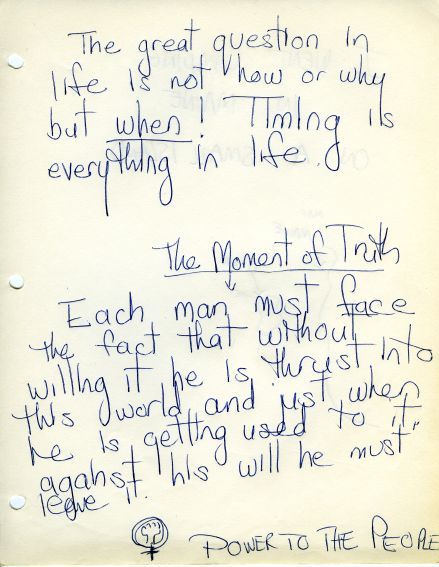 The great question in
life is not how or why
but when! Timing is
everything in life.
The Moment of Truth
Each man must face
the fact that without
willing it he is thrust into
this world and just when
he is getting used to it,
against his will he must
leave it.
POWER TO THE PEOPLE